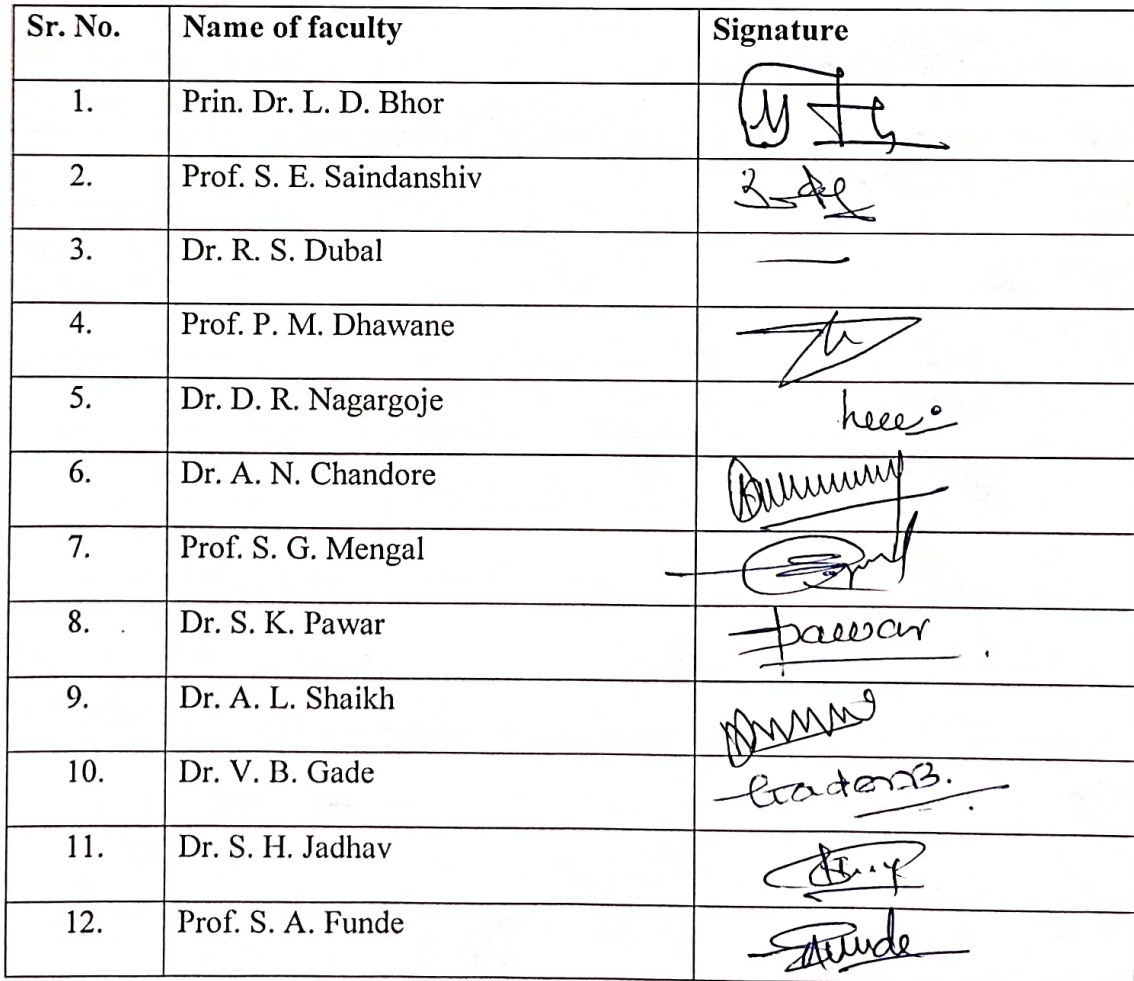 Sr. No. Name of faculty Signature
1. Prin. Dr. L. D. Bhor
2. Prof. S. E. Saindanshiv
3. Dr. R. S. Dubal —
4. Prof. P. M. Dhawane
5. Dr. D. R. Nagargoje
6. Dr. A. N. Chandore
7. Prof. S. G. Mengal
8. Dr. S. K. Pawar Pawar
9. Dr. A. L. Shaikh
10. Dr. V. B. Gade
11. Dr. S. H. Jadhav
12. Prof. S. A. Funde